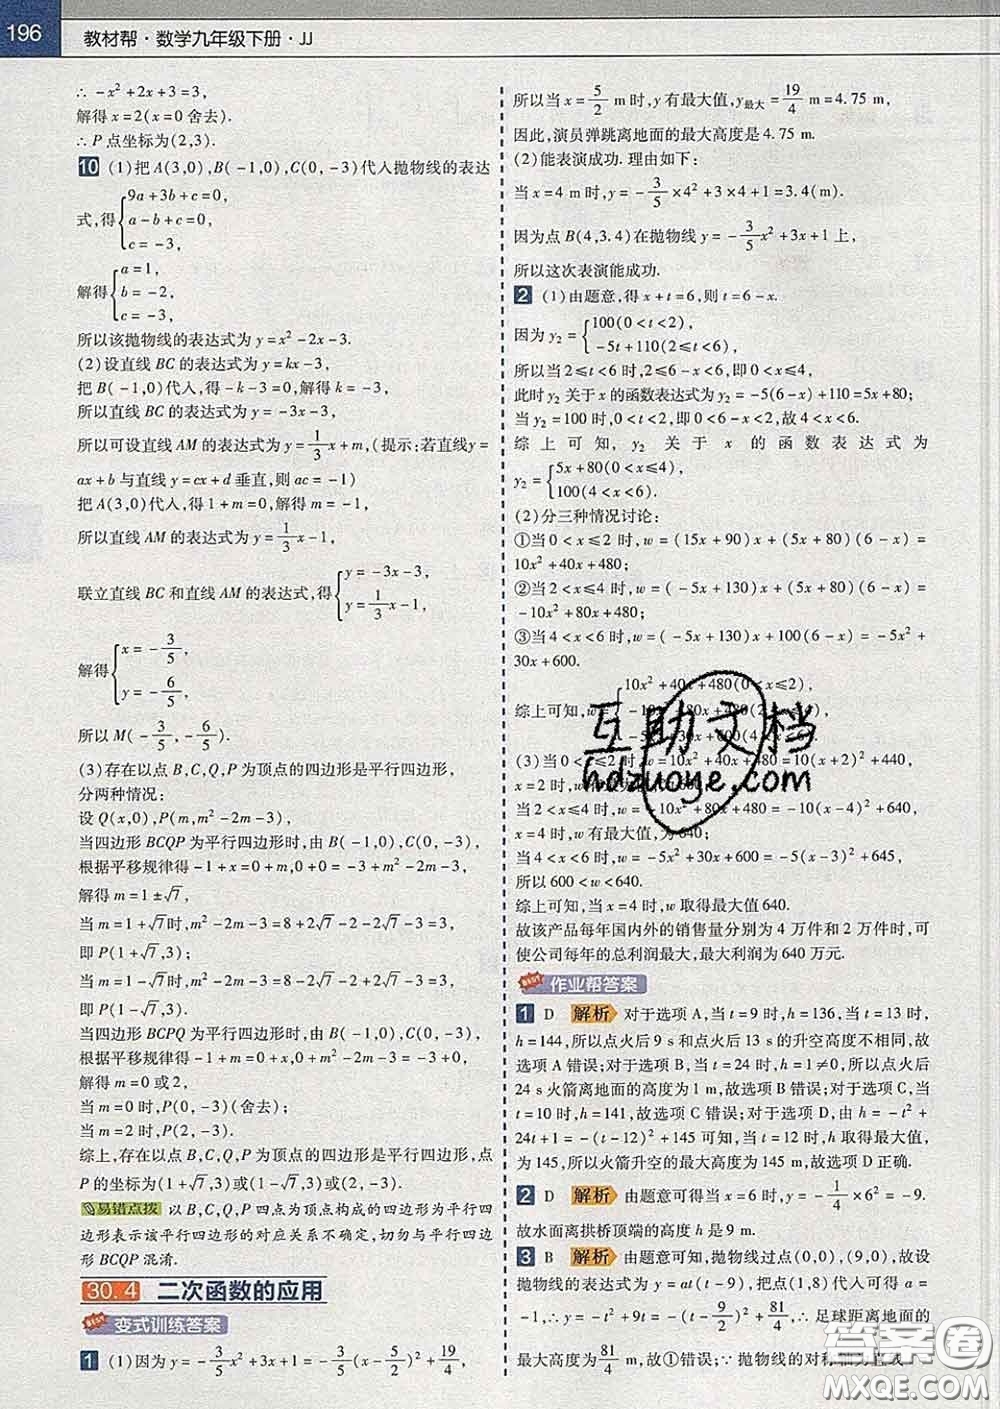 196
教材帮·数学九年级下册·JJ
∴ -x²+2x+3=3,
解得x=2(x=0舍去).
∴P点坐标为(2,3).
10 (1)把A(3,0),B(-1,0),C(0,-3)代入抛物线的表达
式,得{9a+3b+c=0,
a-b+c=0,
c=-3,
解得{a=1,
b=-2,
c=-3,
所以该抛物线的表达式为y=x²-2x-3.
(2)设直线BC的表达式为y=kx-3,
把B(-1,0)代入,得-k-3=0,解得k=-3,
所以直线BC的表达式为y=-3x-3,
所以可设直线AM的表达式为y=1/3x+m,(提示:若直线y=
ax+b与直线y=cx+d垂直,则ac=-1)
把A(3,0)代入,得1+m=0,解得m=-1,
所以直线AM的表达式为y=1/3x-1,
联立直线BC和直线AM的表达式,得{y=-3x-3,
y=1/3x-1,
解得{x=-3/5,
y=-6/5,
所以M(-3/5,-6/5).
(3)存在以点B,C,Q,P为顶点的四边形是平行四边形,
分两种情况:
设Q(x,0),P(m,m²-2m-3),
当四边形BCQP为平行四边形时,由B(-1,0),C(0,-3),
根据平移规律得-1+x=0+m,0+0=-3+m²-2m-3,
解得m=1±√7,
当m=1+√7时,m²-2m-3=8+2√7-2-2√7-3=3,
即P(1+√7,3);
当m=1-√7时,m²-2m-3=8-2√7-2+2√7-3=3,
即P(1-√7,3).
当四边形BCPQ为平行四边形时,由B(-1,0),C(0,-3),
根据平移规律得-1+m=0+x,0+m²-2m-3=-3+0,
解得m=0或2,
当m=0时,P(0,-3)(舍去);
当m=2时,P(2,-3).
综上,存在以点B,C,Q,P为顶点的四边形是平行四边形,点
P的坐标为(1+√7,3)或(1-√7,3)或(2,-3).
易错点拨 以B,C,Q,P四点为顶点构成的四边形为平行四
边形表示该平行四边形的对应关系不确定,切勿与平行四边
形BCQP混淆.
30.4 二次函数的应用
变式训练答案
1 (1)因为y=-3/5x²+3x+1=-3/5(x-5/2)²+19/4,
所以当x=5/2 m时,y有最大值,y最大=19/4 m=4.75 m,
因此,演员弹跳离地面的最大高度是4.75 m.
(2)能表演成功.理由如下:
当x=4 m时,y=-3/5×4²+3×4+1=3.4(m).
因为点B(4,3.4)在抛物线y=-3/5x²+3x+1上,
所以这次表演能成功.
2 (1)由题意,得x+t=6,则t=6-x.
因为y₂={100(0<t<2),
-5t+110(2≤t<6),
所以当2≤t<6时,2≤6-x<6,即0<x≤4,
此时y₂关于x的函数表达式为y₂=-5(6-x)+110=5x+80;
当y₂=100时,0<t<2,即0<6-x<2,故4<x<6.
综上可知,y₂关于x的函数表达式为
y₂={5x+80(0<x≤4),
100(4<x<6).
(2)分三种情况讨论:
①当0<x≤2时,w=(15x+90)x+(5x+80)(6-x)=
10x²+40x+480;
②当2<x≤4时,w=(-5x+130)x+(5x+80)(6-x)=
-10x²+80x+480;
③当4<x<6时,w=(-5x+130)x+100(6-x)=-5x²+
30x+600.
综上可知,w={10x²+40x+480(0<x≤2),
-10x²+80x+480(2<x≤4),
-5x²+30x+600(4<x<6).
(3)当0<x≤2时,w=10x²+40x+480=10(x+2)²+440,
x=2时,w有最大值,为600;
当2<x≤4时,w=-10x²+80x+480=-10(x-4)²+640,
x=4时,w有最大值,为640;
当4<x<6时,w=-5x²+30x+600=-5(x-3)²+645,
所以600<w<640.
综上可知,当x=4时,w取得最大值640.
故该产品每年国内外的销售量分别为4万件和2万件时,可
使公司每年的总利润最大,最大利润为640万元.
作业帮答案
1 D 解析 对于选项A,当t=9时,h=136,当t=13时,
h=144,所以点火后9 s和点火后13 s的升空高度不相同,故
选项A错误;对于选项B,当t=24时,h=1≠0,所以点火后
24 s火箭离地面的高度为1 m,故选项B错误;对于选项C,当
t=10时,h=141,故选项C错误;对于选项D,由h=-t²+
24t+1=-(t-12)²+145可知,当t=12时,h取得最大值,
为145,所以火箭升空的最大高度为145 m,故选项D正确.
2 D 解析 由题意可得当x=6时,y=-1/4×6²=-9.
故水面离拱桥顶端的高度h是9 m.
3 B 解析 由题意可知,抛物线过点(0,0),(9,0),故设
抛物线的表达式为y=at(t-9),把点(1,8)代入可得a=
-1,∴y=-t²+9t=-(t-9/2)²+81/4,∴足球距离地面的
最大高度为81/4 m,故①错误;∵抛物线的对称轴为直线
互助文档
hdzuoye.com
答案圈
MXQE.COM